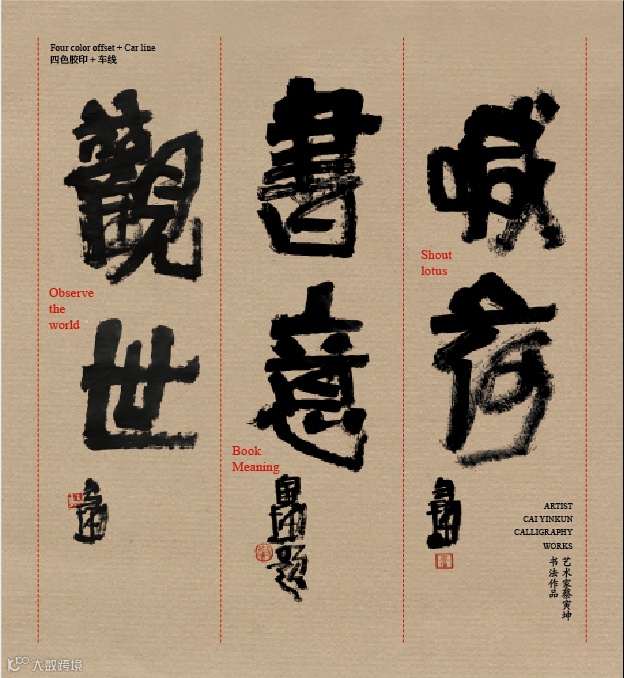 Four color offset + Car line
四色胶印 + 车线
觀世
Observe
the
world
書意
Book
Meaning
題
喊荷
Shout
lotus
ARTIST
CAI YINKUN
CALLIGRAPHY
WORKS
艺术家蔡寅坤
书法作品
大数跨境